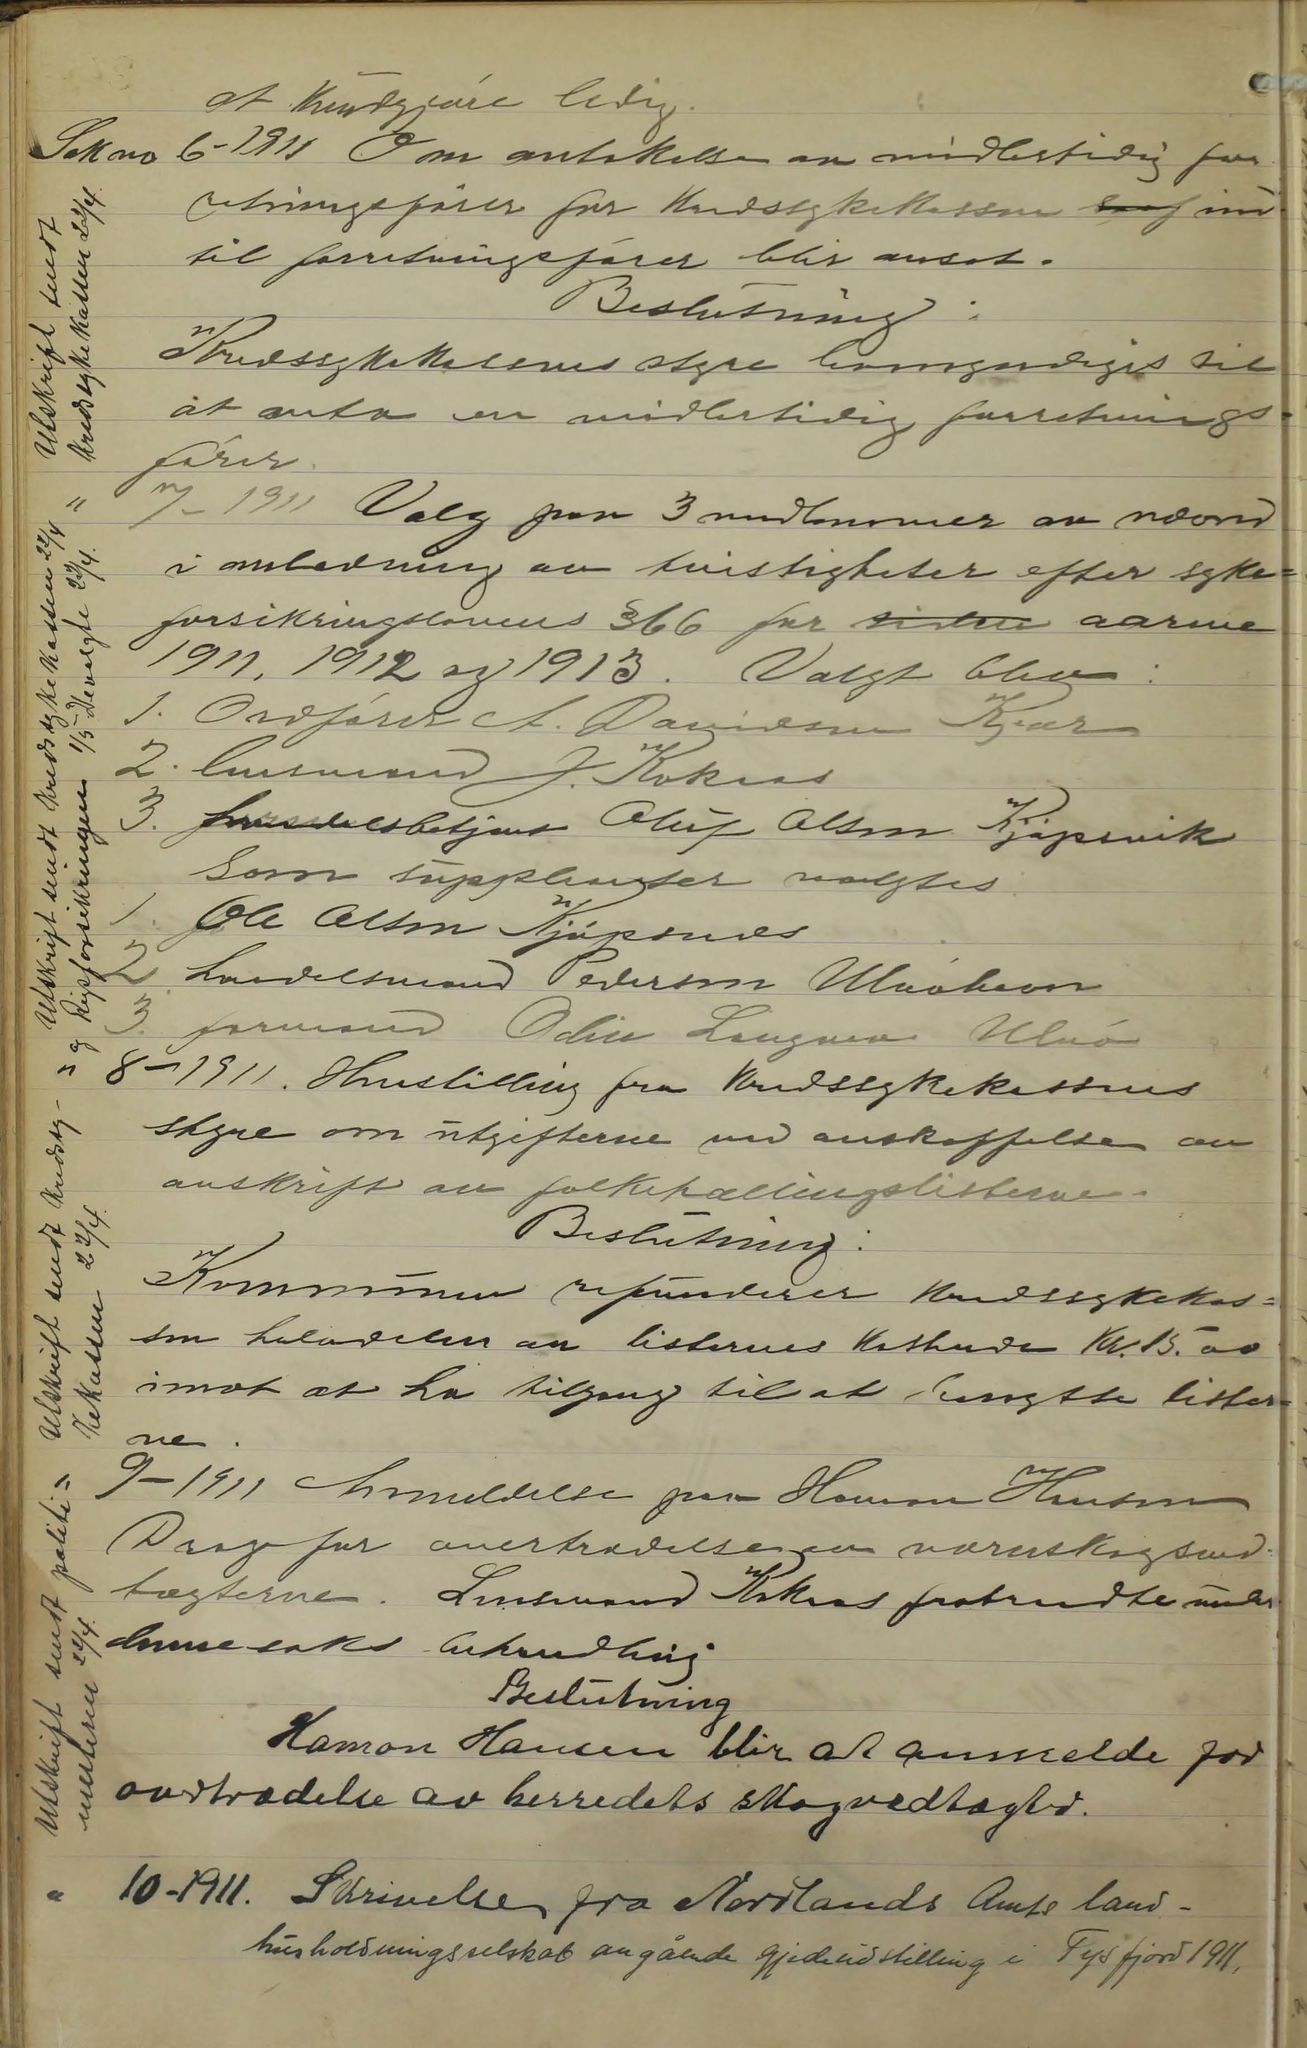 at kundgjøre ledig.
Sak no 6-1911 Om antakelse av midlertidig for
retningsfører for kredssykekassen ind
til forretningsfører blir ansat.
Beslutning:
Kredssykekassens styre bemyndiges til
at anta en midlertidig forretnings-
fører.
7-1911 Valg paa 3 medlemmer av nævnd
i anledning av tvistigheter efter syke=
forsikringslovens §66 for sidste aarene
1911, 1912 og 1913. Valgt blev:
1. Ordfører A. Davidsen Kjær
2. Lensmand J. Koksas
3. handelsbetjent Oluf Olsen Kjøpsvik
Som supplianter valgtes
1. Ole Olsen Kjøpsnes
2 handelsmand Pedersen Ulvøhavn
3. formand Odin Ulvø
8-1911. Henstilling fra kredssykekassens
styre om utgifterne ved anskaffelse av
avskrift av folketællingslisterne.
Beslutning:
Kommunen refunderer kredssykekas=
sen halvdelen av listernes kostende kr. 15.00
imot at ha tilgang til at benytte lister=
ne.
9-1911 Anmeldelse paa Hamon Hansen
Drag for overtrædelse avværnskogsved=
tægterne. Lensmand Koksas fratraadte under
denne saks behandling
Beslutning
Hamon Hansen blir at anmelde for
overtrædelse av herredets skogvedtægter.
" 10-1911. Skrivelse fra Nordlands Amts land-
husholdningsselskab angående gjedeudstilling i Tysfjord 1911.
Utskrift sendt
kredssykekassen 22/4.
" Utskrift sendt kredssykekassen 22/4
og Riksforsikringen 1/5 De valgte 22/4.
" Utskrift sendt kredssy-
kekassen 22/4.
" Utskrift sendt politi=
mesteren 22/4.